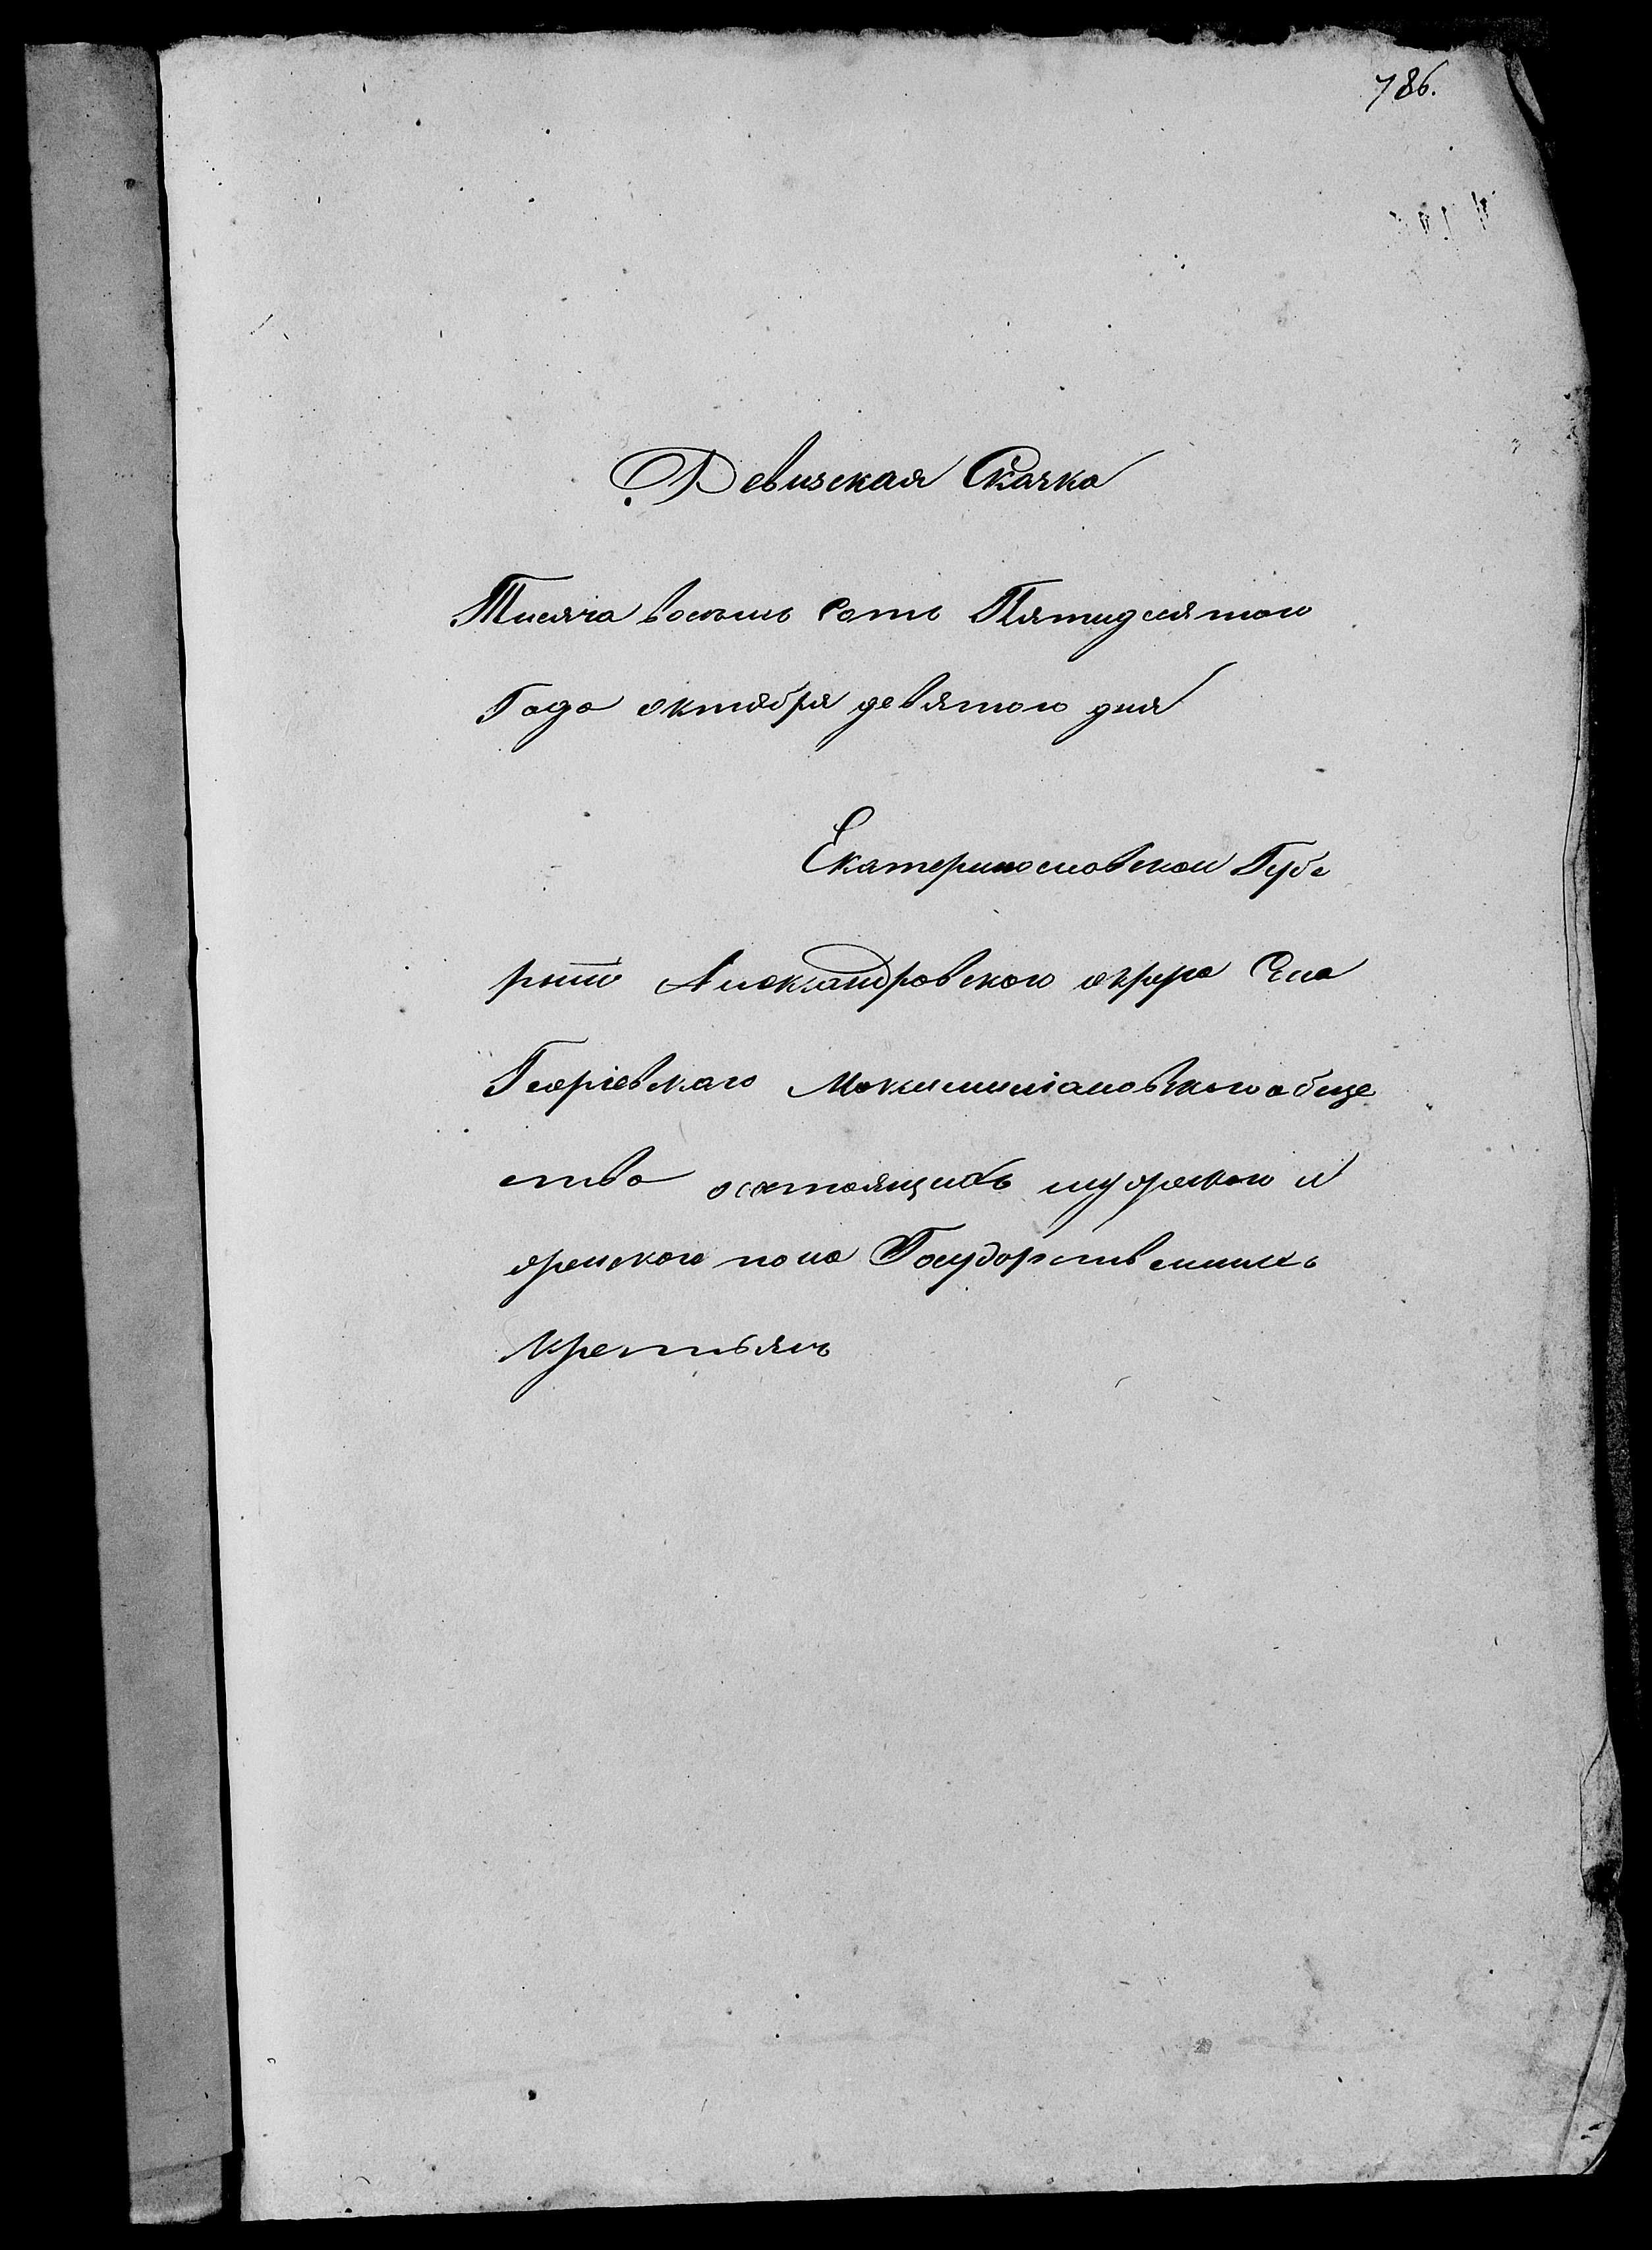 786.
Ревизская Скаска
Тисяча восемь сотъ Пятидесятого
Года октября девятого дня
Екатеринославской Губе
рніи Александровского округа Села
Георгіевскаго Максимиліановского обще
ства состоящихъ мужеского и
женского пола Государственныхъ
крестьянъ